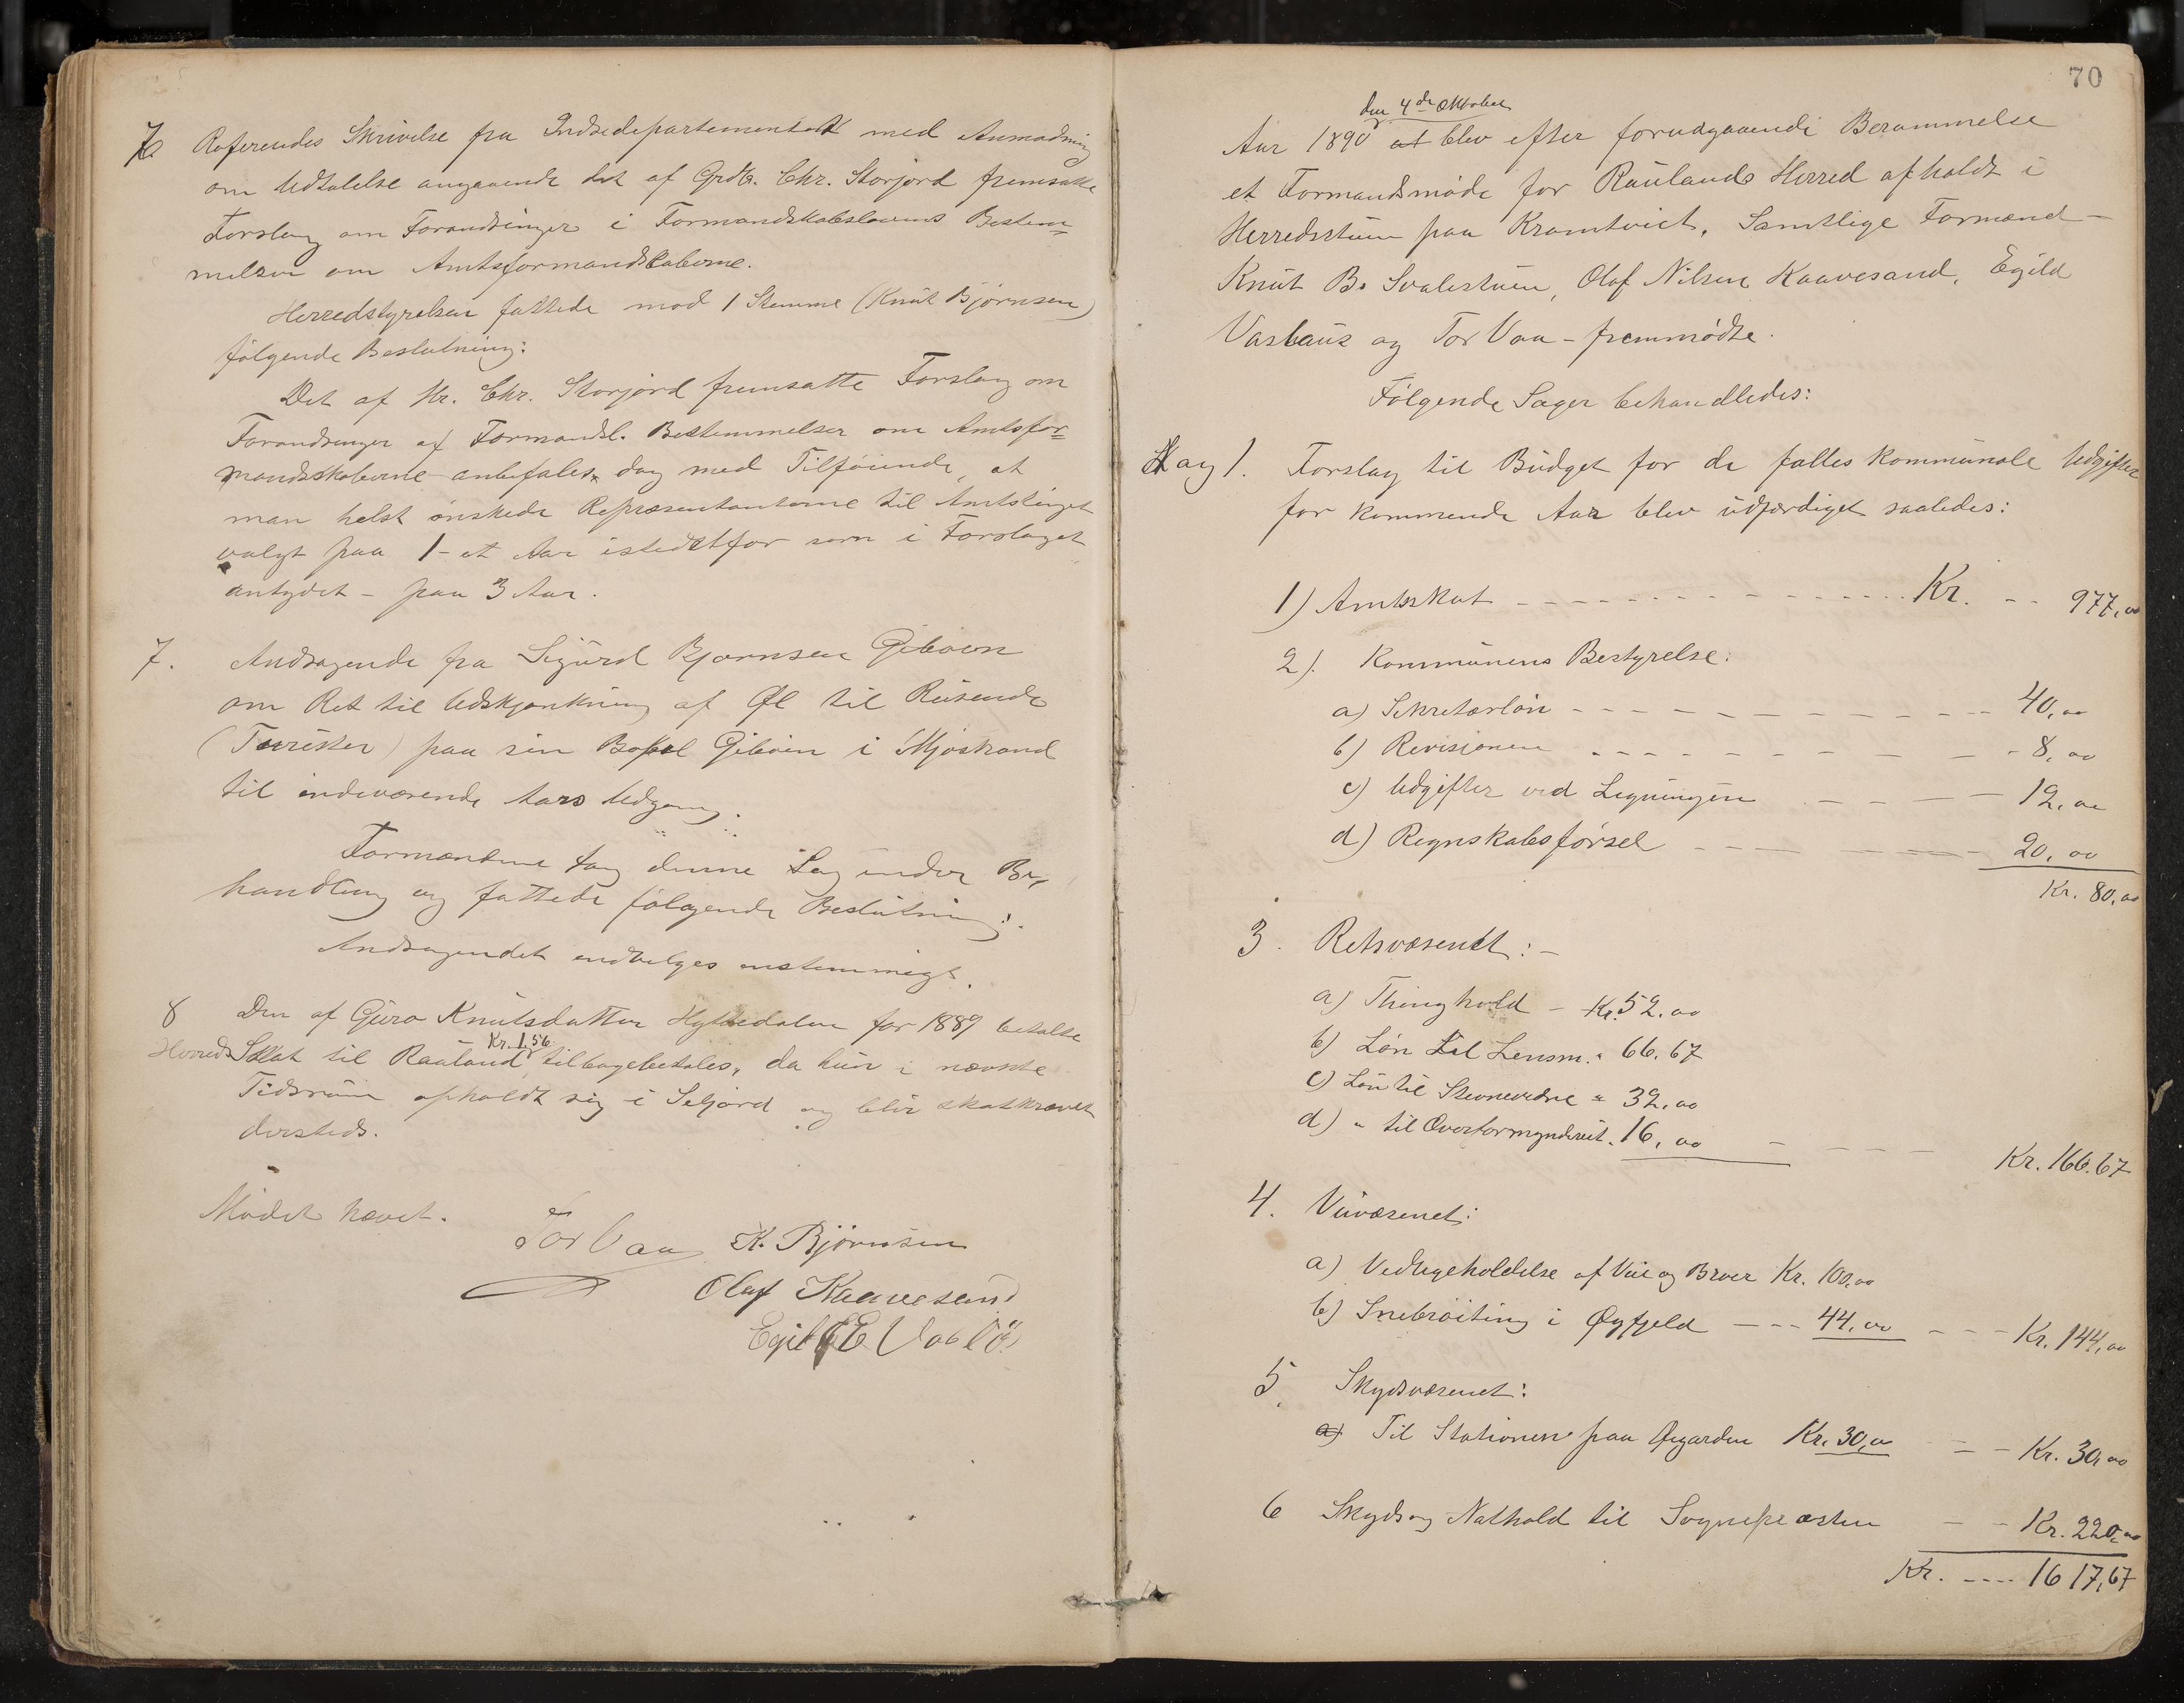 7
Referendes Skrivelse fra Indredepartementet med Anmodning
om Udtalelse angaaende det af Grdb. Chr. Storjord fremsatte
Forslag om Forandringer i Formandskabslovens Bestem=
melser om Amtsformandskaberne.
Herredstyrelsen fattede mod 1 Stemme (Knut Bjørnsen)
følgende Beslutning:
Det af Hr. Chr. Storjord fremsatte Forslag om
Forandringer af Formandsl. Bestemmelser om Amtsfor=
mandsskaberne anbefales, dog med Tilføiende, at
man helst ønskede Repræsentanterne til Amtstinget
valgt paa 1 - et Aar istedetfor som i Forslaget
antydet - paa 3 Aar.
7. Andragende fra Sigurd Bjørnsen Gibøen
om Ret til Udskjænkning af Øl til Reisende
(Turister) paa sin Bopæl Gibøen i Mjøstrand
til indeværende Aars Udgang.
Formændene tog denne Sag under Be-
handling og fattede følgende Beslutning:
Andragendet indvilges enstemmigt.
8 Den af Guro Knutsdatter Hyltedalen for 1889 betalte
Herreds Skat til Rauland Kr. 1.56 tilbagebetales, da hun i nævnte
Tidsrum opholdt sig i Seljord og blir skatkrævet
dersteds.
Mødet hævet.
Tor Vaa K. Bjørnsen
Olaf Kaavesand
Egil E
70
den 4de Oktober
Aar 1890 at blev efter forudgaaende Berammelse
et Formandsmøde for Raulands Herred afholdt i
Herredsstuen paa Kramtveit. Samtlige Formænd -
Knut B. Svalestuen, Olaf Nilsen Kaavesand, Egild
Vaslaus og Tor Vaa - fremmødte.
Følgende Sager behandledes:
Sag 1. Forslag til Budget for de fælles kommunale Udgifter
for kommende Aar blev udfærdiget saaledes:
1) Amtsskat - - - - Kr. - - 977,00
2). Kommunens Bestyrelse:
a) Sekretærløn - - - - 40,00
b) Revisionen - - - - 8,00
c) Udgifter ved Ligningen - - - 12,00
d) Regnskabsførsel - - - 20,00
Kr. 80,00
3. Retsvæsenet: -
a) Thinghold - Kr. 52.00
b) Løn til Lensm. " 66.67
c) Løn til Stevnevidne " 32,00
d) " til Overformynderiet. 16,00 - - - - Kr. 166.67
4. Veivæsenet:
a) Vedligeholdelse af Veie og Broer Kr. 100,00
b) Snebrøiting i Øyfjeld - - - 44,00 - - - Kr. 144,00
5. Skydsvæsenet:
a) Til Stationen paa Øigarden Kr. 30,00 - - Kr. 30,00
6 Skyds og Nathold til Sognepræsten - - Kr. 220,00
Kr. ---- 1617,67